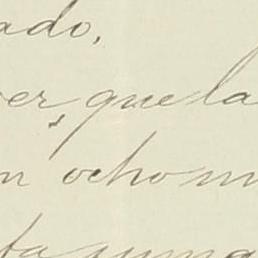 ado,
er, que la
n ocho m
ta suma